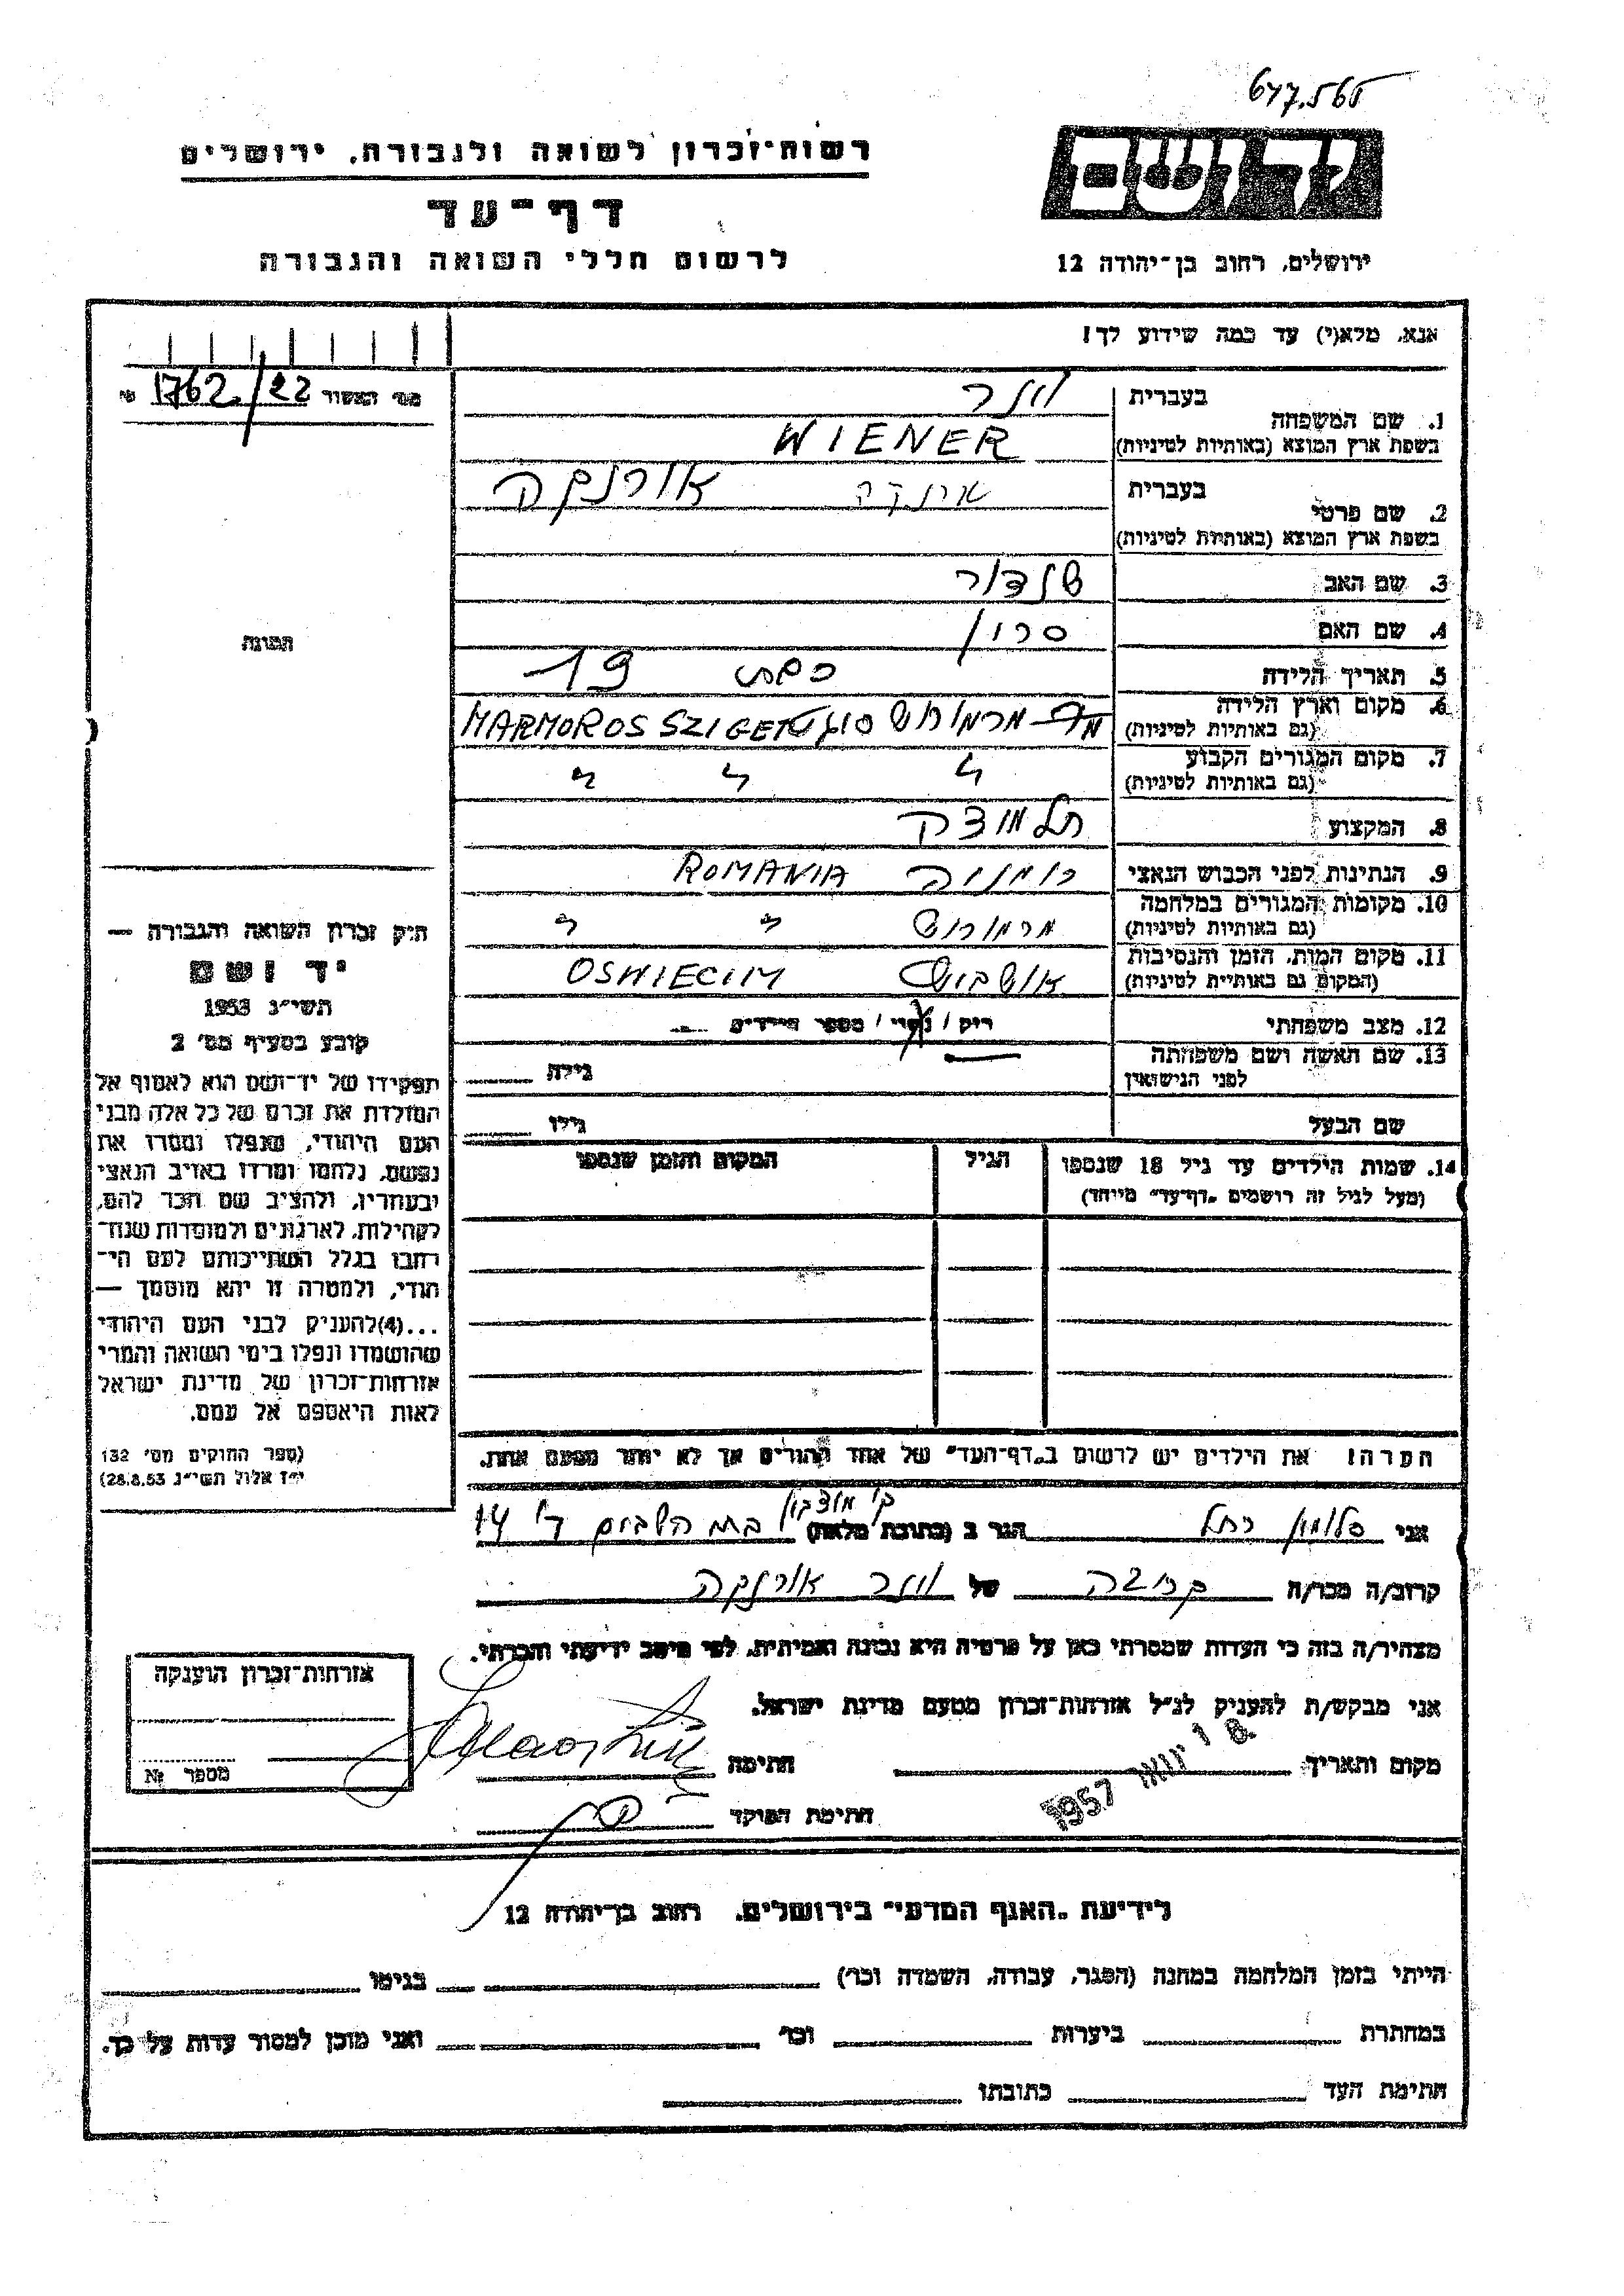 677.565
רשות-זכרון לשואה ולגבורה, ירושלים
דף-עד
לרשום חללי השואה והגבורה
ידושם
ירושלים, רחוב בן-יהודה 12
אנא, מלא(י) עד כמה שידוע לך!
מס' האשור 1762/22
1. שם המשפחה
בעברית וינר
בשפת ארץ המוצא (באותיות לטיניות) WIENER
2. שם פרטי
בעברית אורנקה
בשפת ארץ המוצא (באותיות לטיניות)
3. שם האב שנדור
4. שם האם
5. תאריך הלידה 19
6. מקום וארץ הלידה מרמורוש סיגט MARMOROS SZIGET
(גם באותיות לטיניות)
7. מקום המגורים הקבוע " " "
(גם באותיות לטיניות)
8. המקצוע תלמודה
9. הנתינות לפני הכבוש הנאצי רומניה ROMANIA
10. מקומות המגורים במלחמה מרמורוש " "
(גם באותיות לטיניות)
11. מקום המות, הזמן והנסיבות אושביץ OSWIECIM
(המקום גם באותיות לטיניות)
12. מצב משפחתי רוק / נשוי / מספר הילדים
13. שם האשה ושם משפחתה
לפני הנישואין גילה
שם הבעל גילו
14. שמות הילדים עד גיל 18 שנספו הגיל המקום והזמן שנספו
(מעל לגיל זה רושמים "דף-עד" מיוחד)
הערה! את הילדים יש לרשום ב"דף-העד" של אחד ההורים אך לא יותר מפעם אחת.
תמונה
חוק זכרון השואה והגבורה —
יד ושם
תשי"ג 1953
קובע בסעיף מס' 2
תפקידו של יד-ושם הוא לאסוף אל
המולדת את זכרם של כל אלה מבני
העם היהודי, שנפלו ומסרו את
נפשם, נלחמו ומרדו באויב הנאצי
ובעוזריו, ולהציב שם וזכר להם,
לקהילות, לארגונים ולמוסדות שנח-
רבו בגלל השתייכותם לעם הי-
הודי, ולמטרה זו יהא מוסמך —
...(4)להעניק לבני העם היהודי
שהושמדו ונפלו בימי השואה והמרי
אזרחות-זכרון של מדינת ישראל
לאות היאספם אל עמם.
(ספר החוקים מס' 132
י"ז אלול תשי"ג 28.8.53)
אני סלומון רחל הגר ב (כתובת מלאה) 14
קרוב/ה מכר/ה קרובה של וינר אורנקה
מצהיר/ה בזה כי העדות שמסרתי כאן על פרטיה היא נכונה ואמיתית, לפי מיטב ידיעתי והכרתי.
אני מבקש/ת להעניק לנ"ל אזרחות-זכרון מטעם מדינת ישראל.
מקום ותאריך 18 ינואר 1957 חתימה
חתימת הפוקד
אזרחות-זכרון הוענקה
מספר №
לידיעת "האגף המדעי" בירושלים, רחוב בן-יהודה 12
הייתי בזמן המלחמה במחנה (הסגר, עבודה, השמדה וכו') בגיטו
במחתרת ביערות וכו' ואני מוכן למסור עדות על כך.
חתימת העד כתובתו